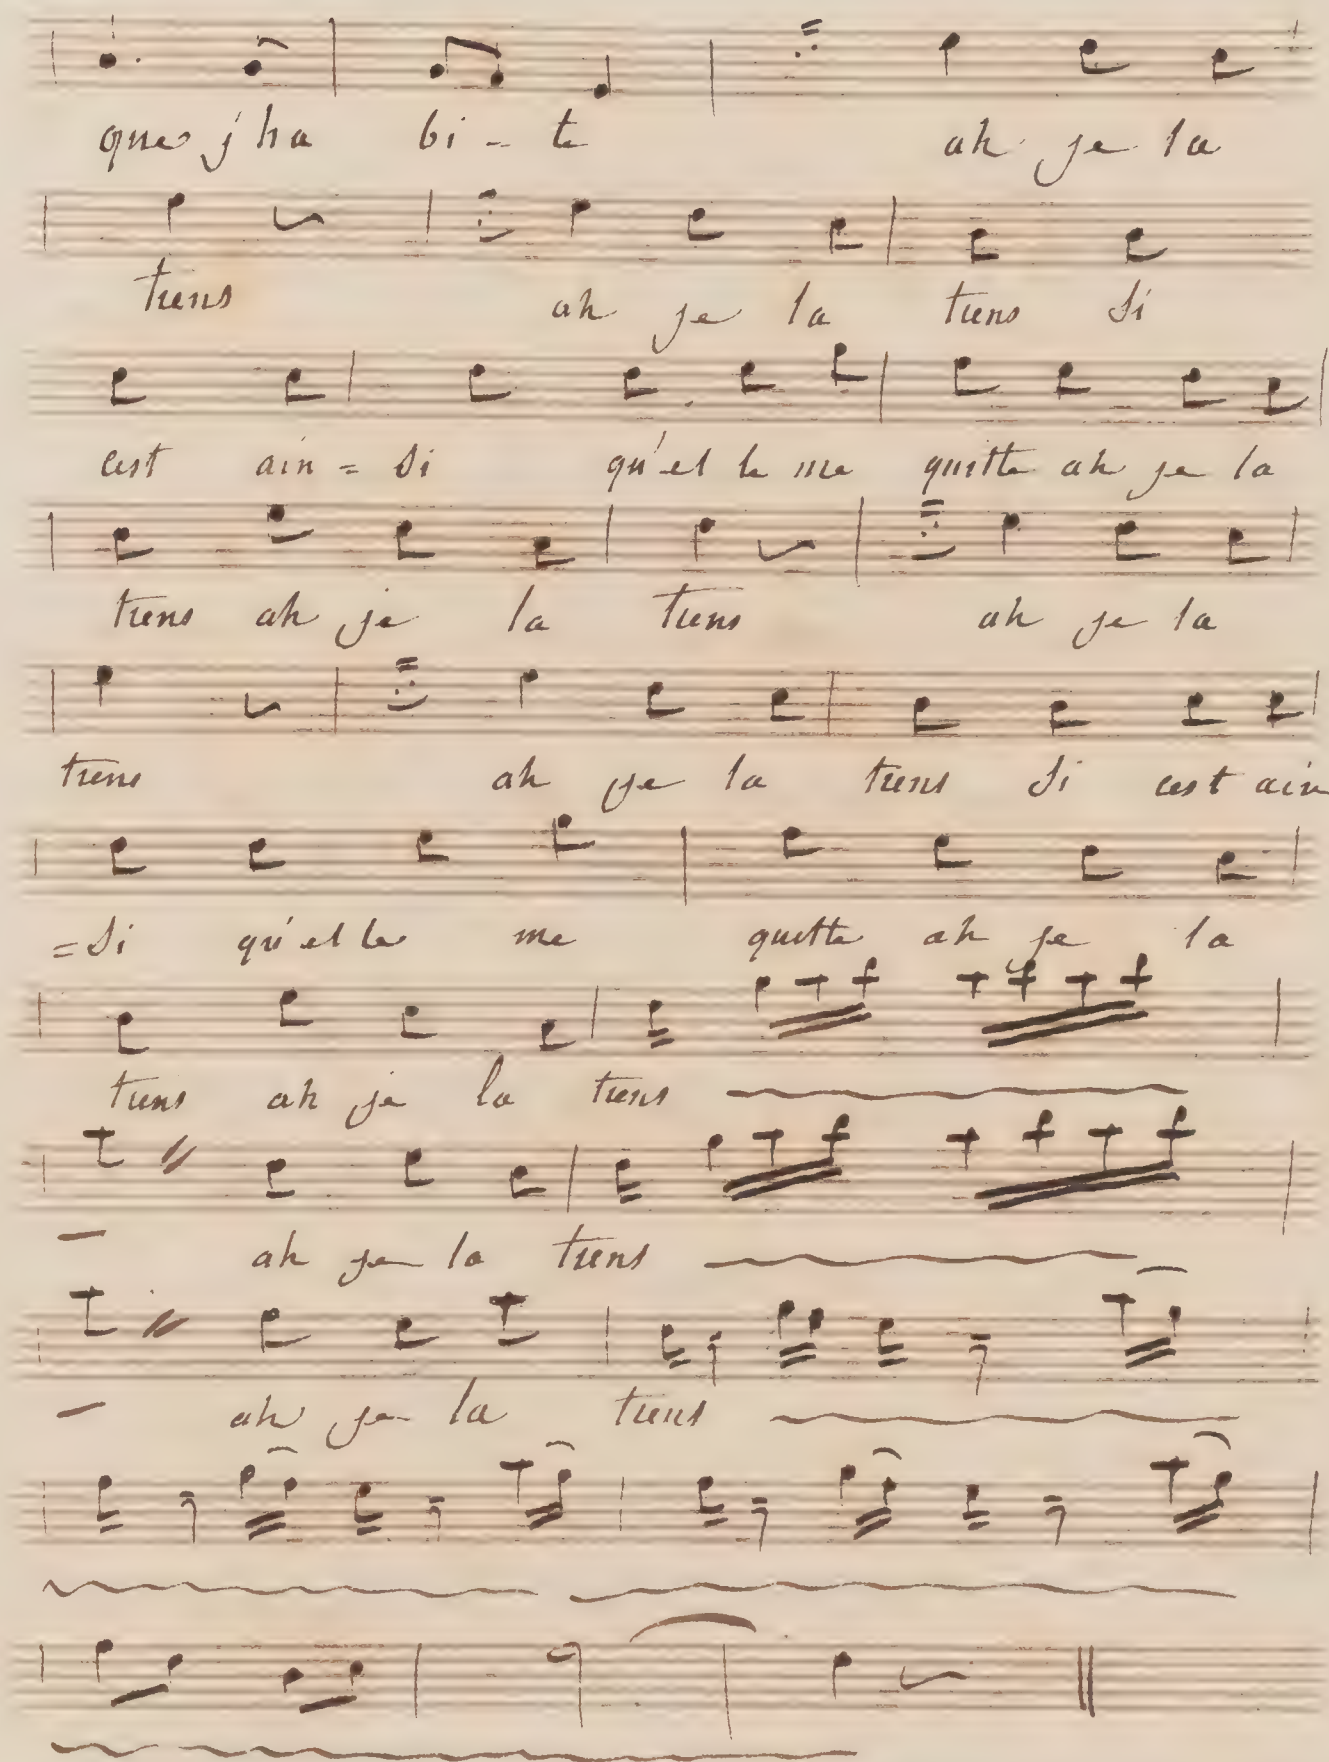 que j'ha bi - te ah je la
tiens ah je la tiens Si
cest ain = Si qu'el le me quitte ah je la
tiens ah je la tiens ah je la
tiens ah je la tiens Si cest ain
= Si qu'el le me quitte ah je la
tiens ah je la tiens
ah je la tiens
ah je la tiens